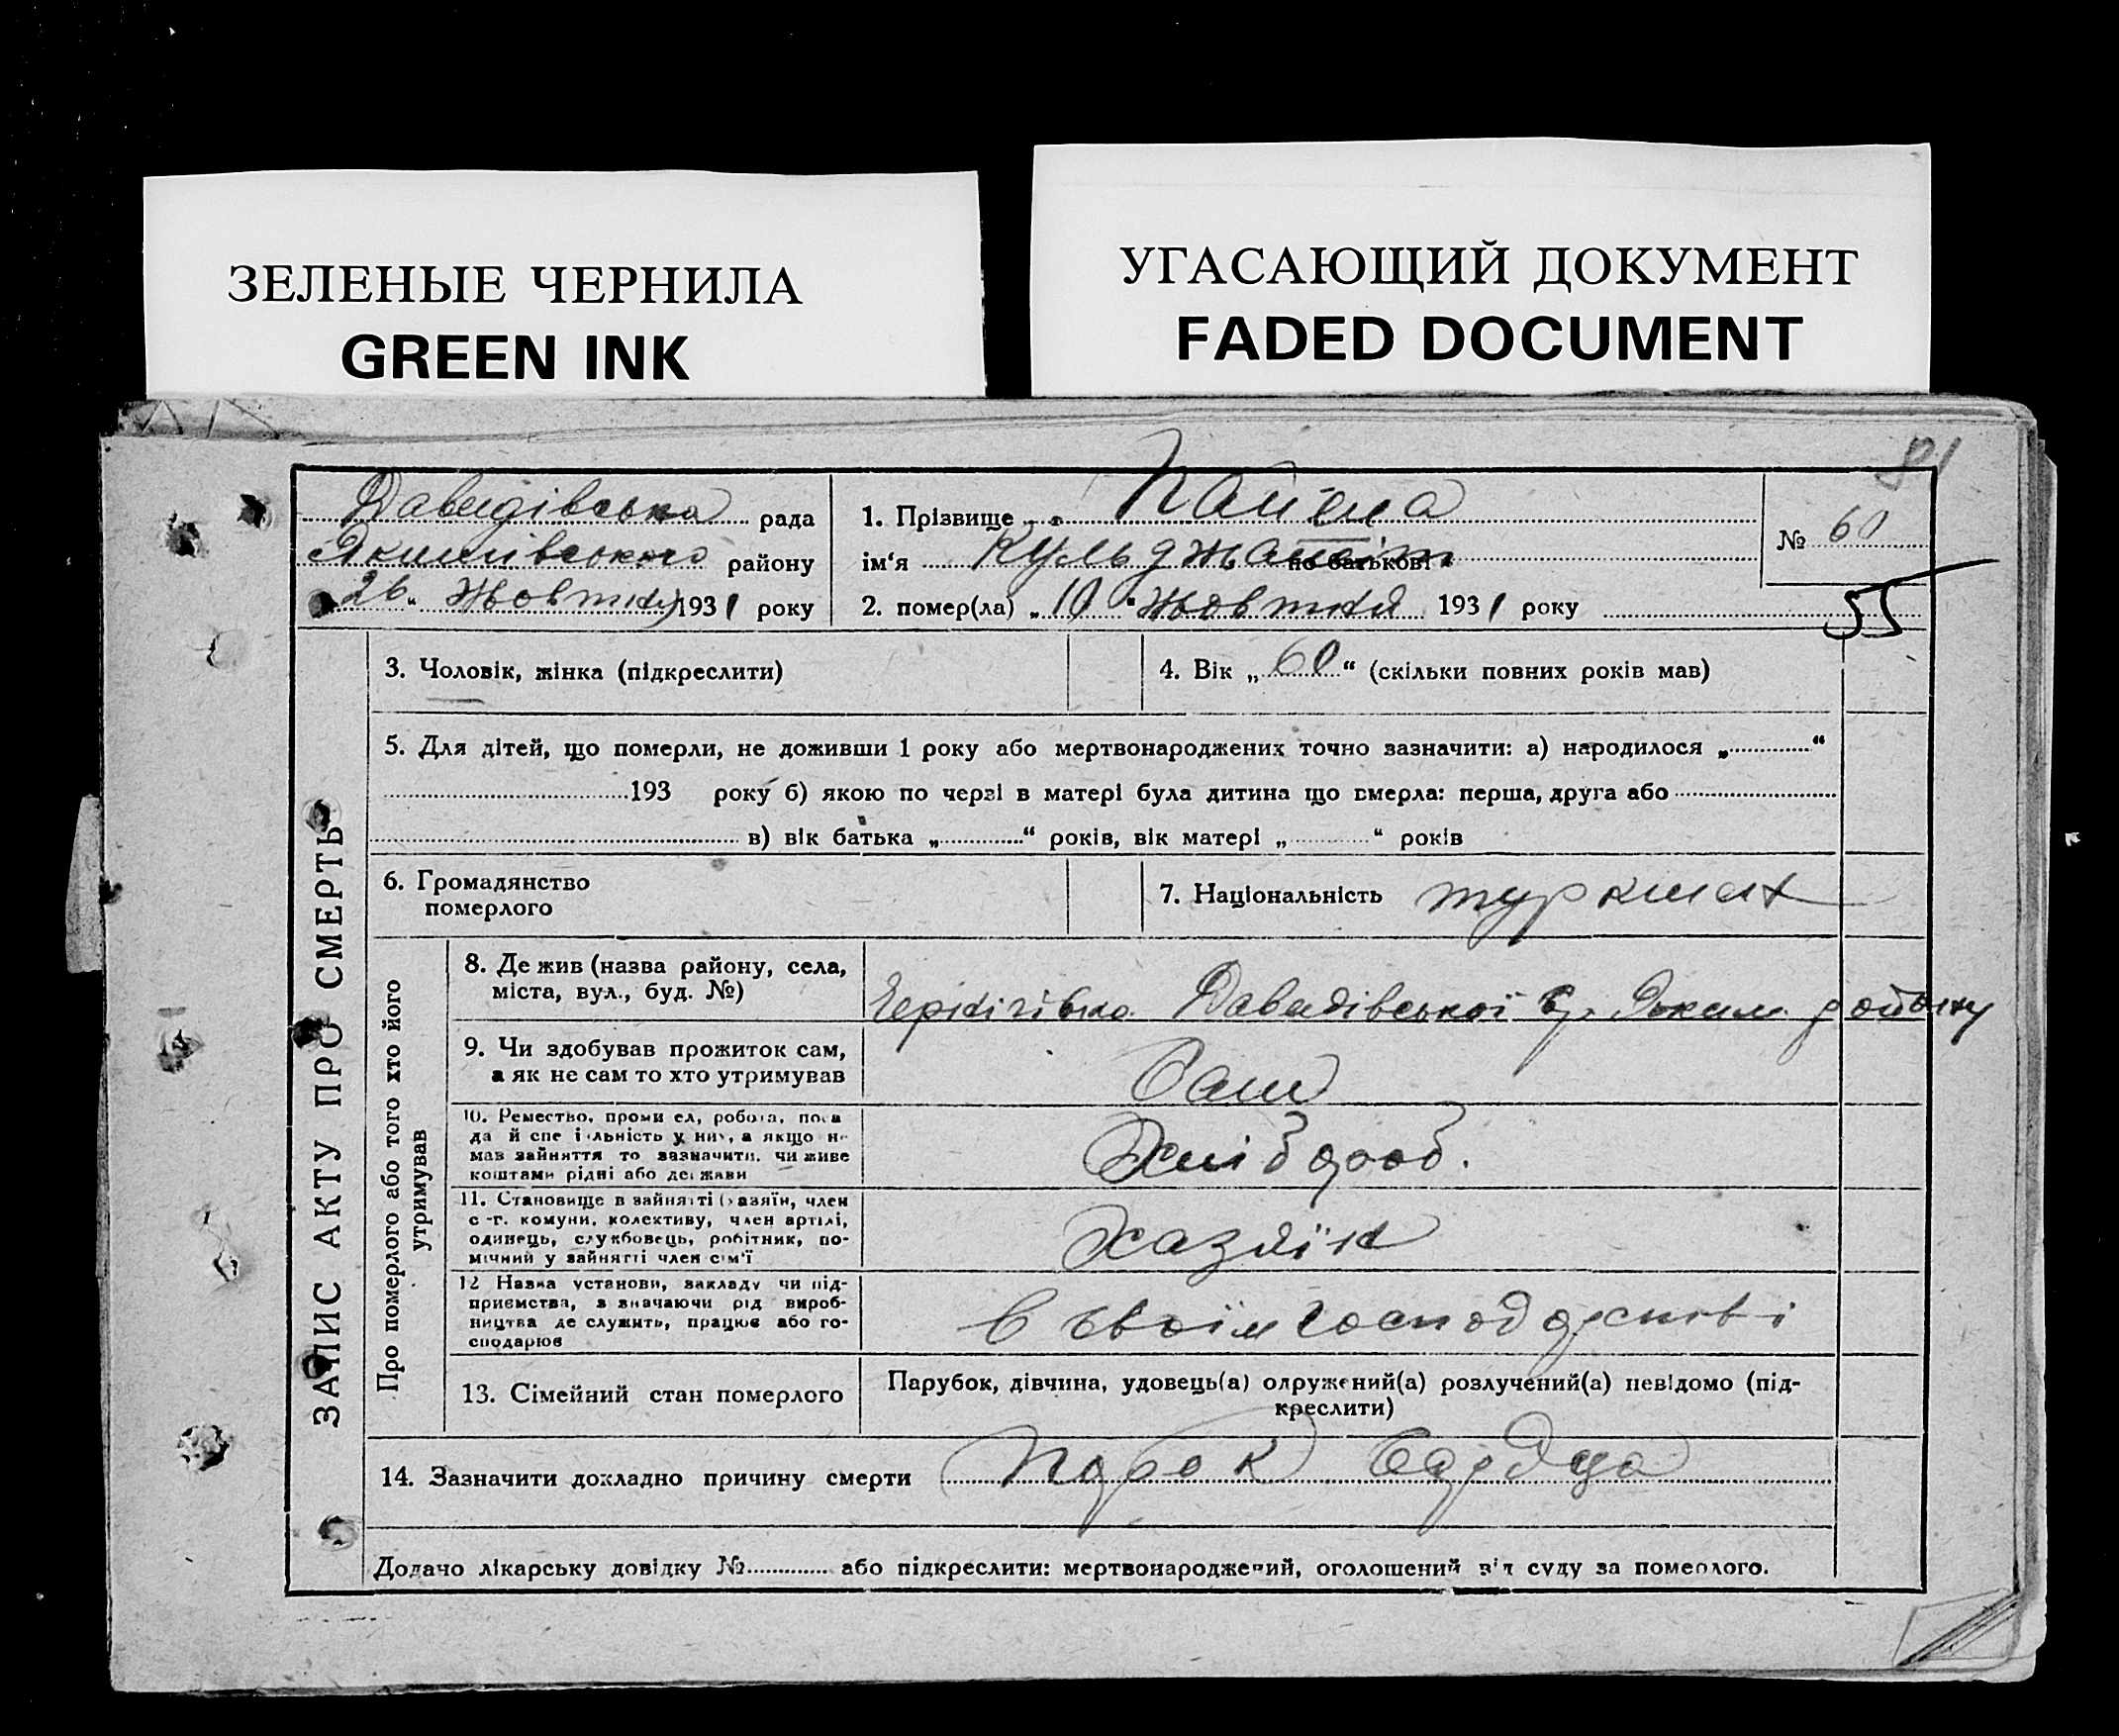 ЗЕЛЕНЫЕ ЧЕРНИЛА
GREEN INK
УГАСАЮЩИЙ ДОКУМЕНТ
FADED DOCUMENT
81
Давидівська рада
Якимівського району
26 “ Жовтня 1931 року
1. Прізвище
ім‘я по батькові
№ 60
2. помер(ла) „ 10 “ Жовтня 1931 року
55
ЗАПИС АКТУ ПРО СМЕРТЬ
3. Чоловік, жінка (підкреслити)
4. Вік „ 60 “ (скільки повних років мав)
5. Для дітей, що померли, не доживши 1 року або мертвонароджених точно зазначити: а) народилося „ “
193 року б) якою по черзі в матері була дитина що вмерла: перша, друга або
в) вік батька „ “ років, вік матері „ “ років
6. Громадянство
померлого
7. Національність туркмен
Про померлого або того хто його
утримував
8. Де жив (назва району, села,
міста, вул., буд. №)
Давидівської Яким. району
9. Чи здобував прожиток сам,
а як не сам то хто утримував
Сам
10. Ремество, промисел, робота, поса
да й спеціальність у них, а якщо не
мав зайняття то зазначити, чи живе
коштами рідні або держави
Хлібороб.
11. Становище в зайнятті (хазяїн, член
с.-г. комуни, колективу, член артілі,
одинець, службовець, робітник, по-
мічний у зайнятті член сім'ї
Хазяїн
12 Назва установи, закладу чи під-
приємства, зазначаючи рід вироб-
ництва де служить, працює або го-
сподарює
В своїм господарстві
13. Сімейний стан померлого
Парубок, дівчина, удовець(а) одружений(а) розлучений(а) невідомо (під-
креслити)
14. Зазначити докладно причину смерти Порок Сердца
Додачо лікарську довідку № або підкреслити: мертвонароджений, оголошений від суду за померлого.